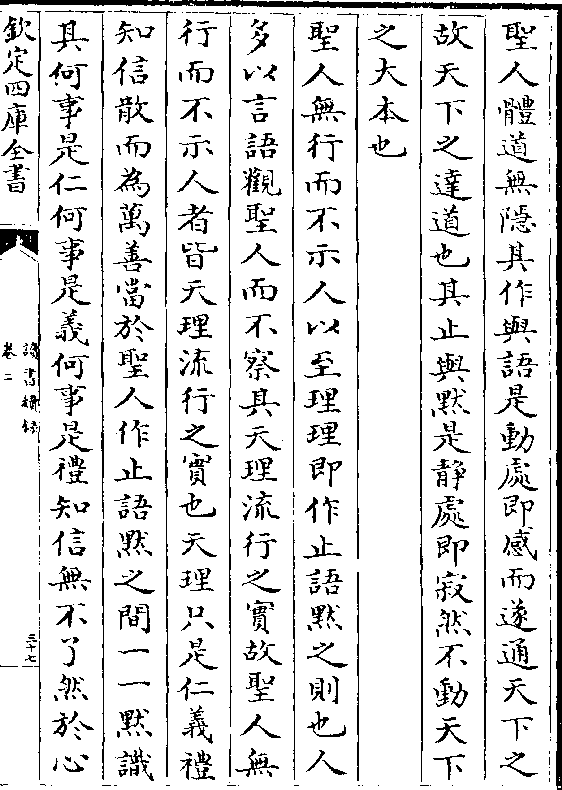 聖人體道無隱其作與語是動處即感而遂通天下之
故天下之達道也其止與黙是静處即寂然不動天下
之大本也
聖人無行而不示人以至理理即作止語黙之則也人
多以言語觀聖人而不察其天理流行之實故聖人無
行而不示人者皆天理流行之實也天理只是仁義禮
知信散而為萬善當於聖人作止語黙之間一一黙識
其何事是仁何事是義何事是禮知信無不了然於心
欽定四庫全書
讀書續錄
卷二
三十七